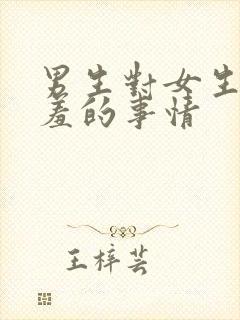 男生對女生
羞的事情
王梓芸